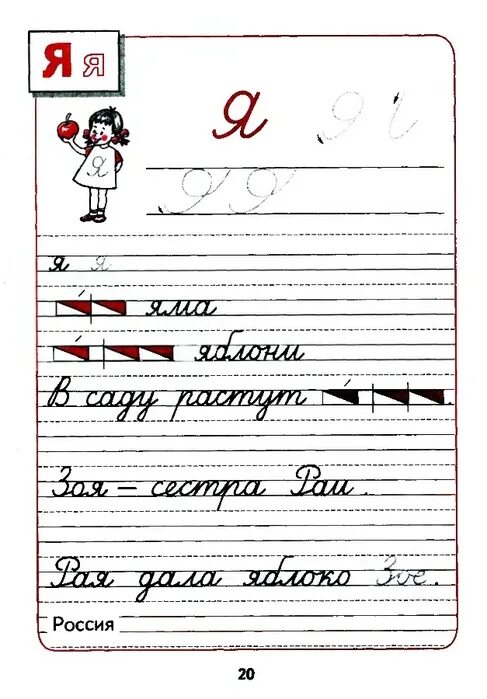 Я я
Я Я
Я Я
я я
яма
яблони
В саду растут .
Зоя – сестра Раи.
Рая дала яблоко Зое.
Россия
20